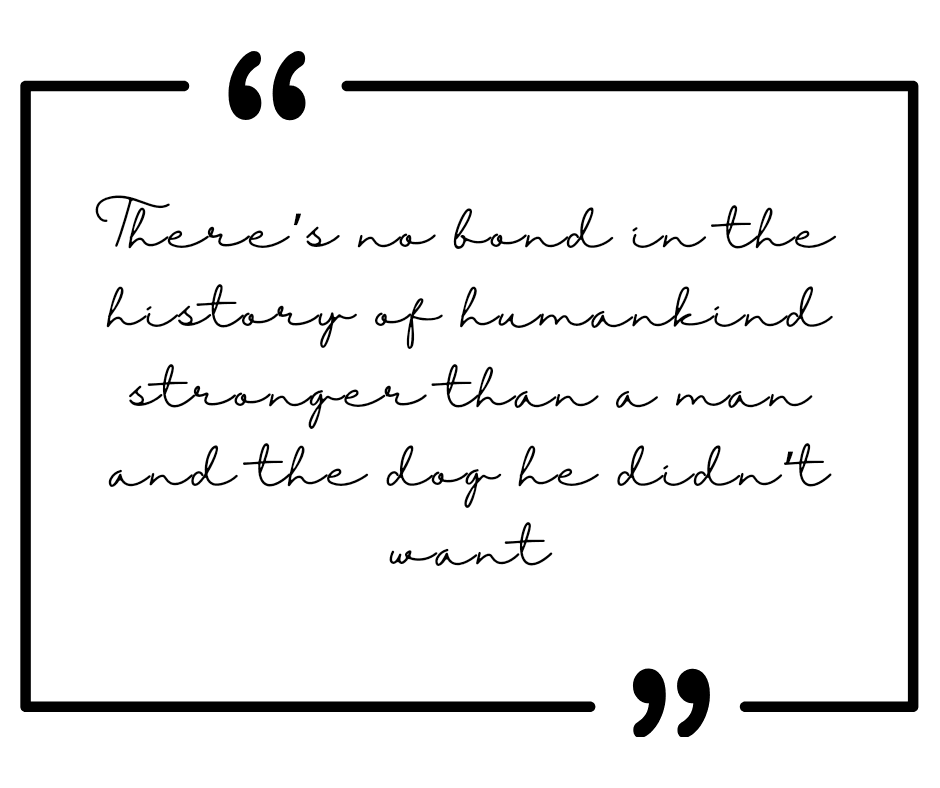 “
There's no bond in the
history of humankind
stronger than a man
and the dog he didn't
want
”